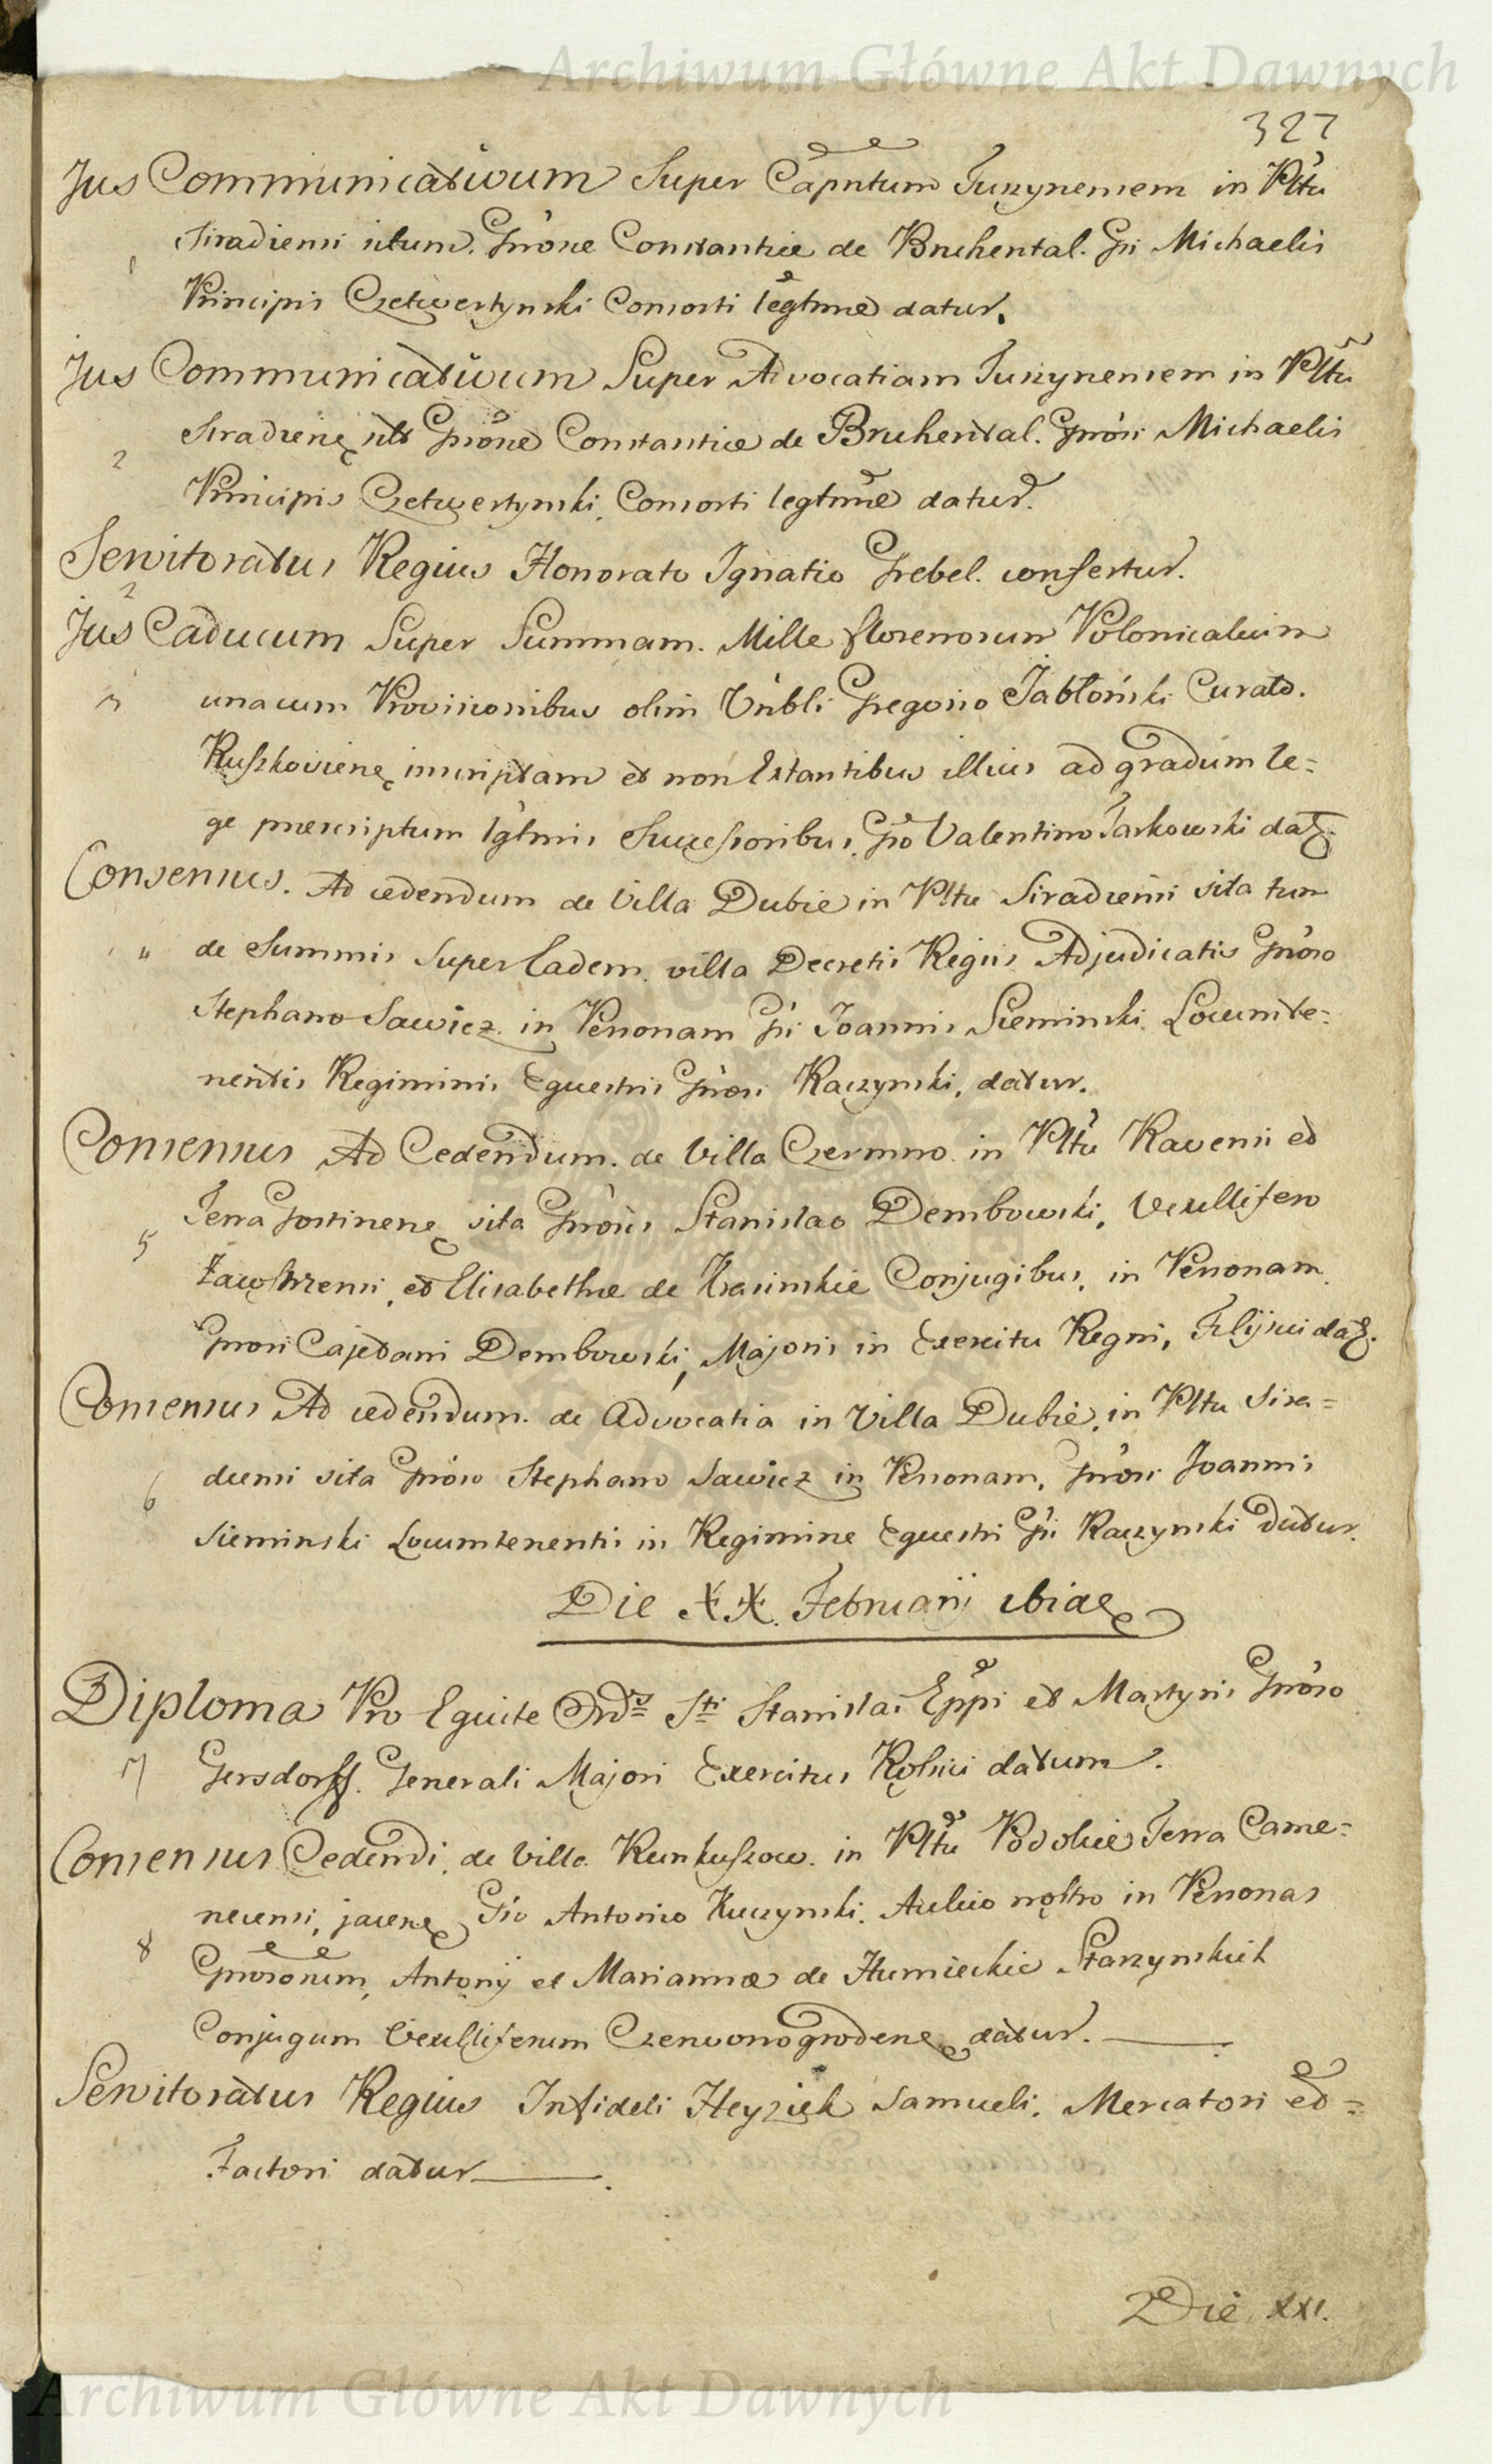 Archiwum Główne Akt Dawnych
327
Jus Communicativum Super Capntum Tuszynensem in Pltu
1 Siradiensi situm. Gnone Constantiæ de Bruhental. Gri Michaelis
Principis Czetwertynski Consorti legtme datur.
Jus Communicativum Super Advocatiam Tuszynensem in Pltu
2 Siradiene sit Gnone Constantiæ de Bruhental. Gnosi Michaelis
Principis Czetwertynski Consorti legtme datur.
Servitoratus Regius Honorato Ignatio Grebel. confertur.
2
Jus Caducum Super Summam. Mille florenorum Polonicalium
3 unacum Provisionibus olim Vnbli Gregorio Jabłoński Curato.
Kuszkoviene inscriptam et non Extantibus illius ad gradum le=
ge præscriptum lgtmis Successoribus, Gso Valentino Jaskowski dat.
Consensus. Ad cedendum de Villa Dubie in Pltu Siradiensi sita tum
4 de Summis Super Eadem villa Decretis Regiis Adjudicatis Gnoso
Stephano Sawicz in Personam Gsi Joannis Sieminski Locumte=
nentis Regiminis Equestris Gnosi Raczynski, datur.
Consensus Ad Cedendum. de Villa Czermno in Pltu Ravensi et
5 Terra Gostinene sita Gnosis Stanislao Dembowski, Vexillifero
Zawskrzensi, et Elisabethæ de Krasinskie Conjugibus, in Personam
Gnosi Cajetani Dembowski, Majoris in Exercitu Regni, Filij sui dat.
Consensus Ad cedendum. de Advocatia in Villa Dubie, in Pltu Sira=
6 diensi sita Gnoso Stephano Sawicz in Personam, Gnosi Joannis
Sieminski Locumtenentis in Regimine Equestri Gsi Raczynski Datur.
Die XX. Februarij ibide
Diploma Pro Equite Ordis Sti Stanislai Eppi et Martyris Gnoso
7 Gersdorff. Generali Majori Exercitus Rossici datum.
Consensus Cedendi, de Villa Kunkuszow. in Pltu Podoliæ Terra Came=
necensi, jacene Gso Antonio Kuczynski. Aulico nostro in Personas
8 Gnosorum, Antonij et Mariannæ de Humieckie Starzynskich
Conjugum Vexilliferum Czerwonogrodene datur.
Servitoratus Regius Infideli Heyzich Samueli. Mercatori et=
Factori datur
Die XXI.
Archiwum Główne Akt Dawnych